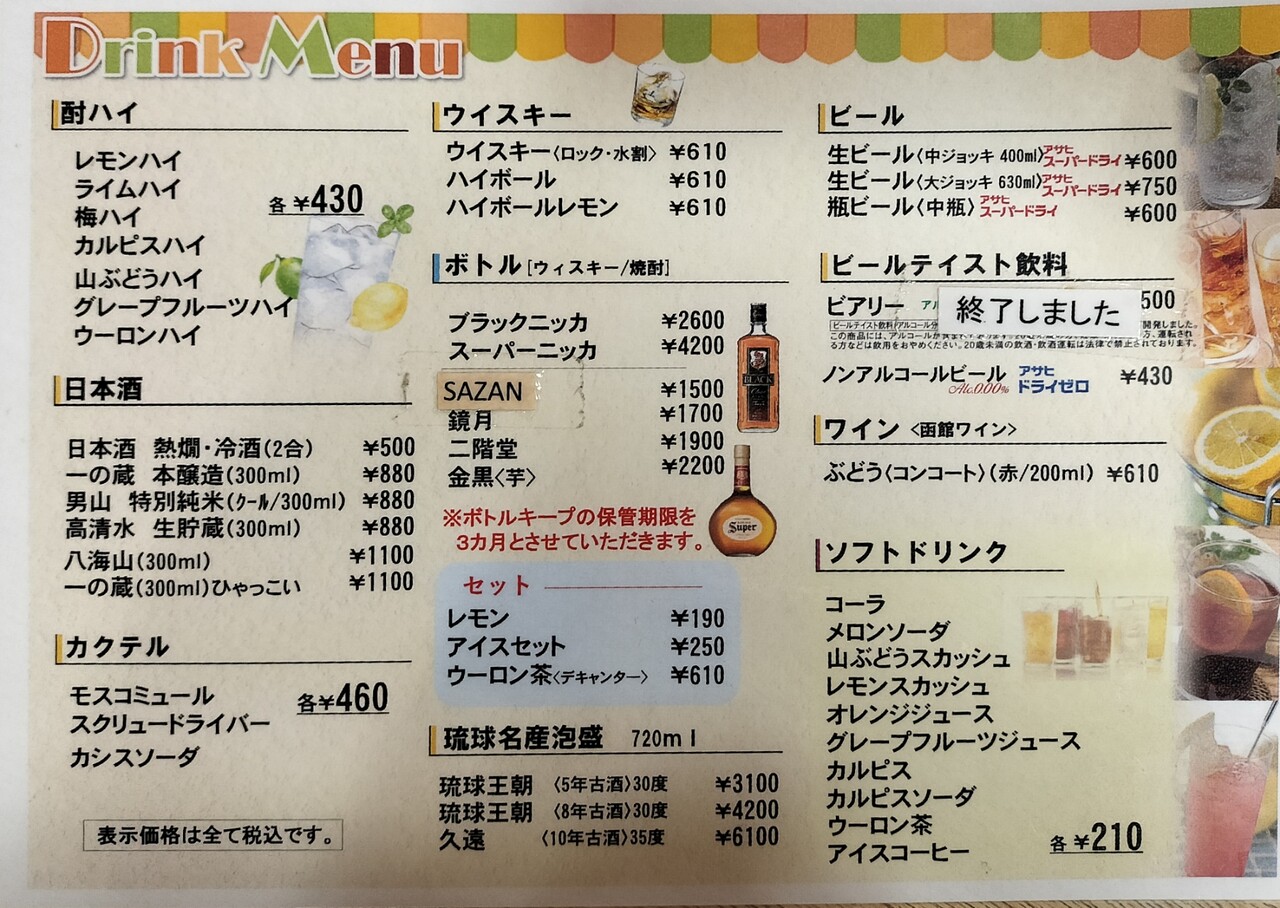 Drink Menu
酎ハイ
レモンハイ
ライムハイ
梅ハイ
カルピスハイ
山ぶどうハイ
グレープフルーツハイ
ウーロンハイ
各 ¥430
日本酒
日本酒 熱燗・冷酒(2合) ¥500
一の蔵 本醸造(300ml) ¥880
男山 特別純米(クール/300ml) ¥880
高清水 生貯蔵(300ml) ¥880
八海山(300ml) ¥1100
一の蔵(300ml)ひゃっこい ¥1100
カクテル
モスコミュール
スクリュードライバー
カシスソーダ
各¥460
表示価格は全て税込です。
ウイスキー
ウイスキー〈ロック・水割〉 ¥610
ハイボール ¥610
ハイボールレモン ¥610
ボトル[ウィスキー/焼酎]
ブラックニッカ ¥2600
スーパーニッカ ¥4200
SAZAN ¥1500
鏡月 ¥1700
二階堂 ¥1900
金黒〈芋〉 ¥2200
BLACK
Super
※ボトルキープの保管期限を
3カ月とさせていただきます。
セット
レモン ¥190
アイスセット ¥250
ウーロン茶〈デキャンター〉 ¥610
琉球名産泡盛 720ml
琉球王朝 〈5年古酒〉30度 ¥3100
琉球王朝 〈8年古酒〉30度 ¥4200
久遠 〈10年古酒〉35度 ¥6100
ビール
生ビール〈中ジョッキ 400ml〉アサヒスーパードライ ¥600
生ビール〈大ジョッキ 630ml〉アサヒスーパードライ ¥750
瓶ビール〈中瓶〉アサヒスーパードライ ¥600
ビールテイスト飲料
ビアリー アル 終了しました 500
ビールテイスト飲料/アルコール分 開発しました。
この商品には、アルコールが含まれ 方、運転され
る方などは飲用をおやめください。20歳未満の飲酒・飲酒運転は法律で禁止されております。
ノンアルコールビール Alc.0.00% アサヒドライゼロ ¥430
ワイン 〈函館ワイン〉
ぶどう〈コンコート〉(赤/200ml) ¥610
ソフトドリンク
コーラ
メロンソーダ
山ぶどうスカッシュ
レモンスカッシュ
オレンジジュース
グレープフルーツジュース
カルピス
カルピスソーダ
ウーロン茶
アイスコーヒー
各 ¥210